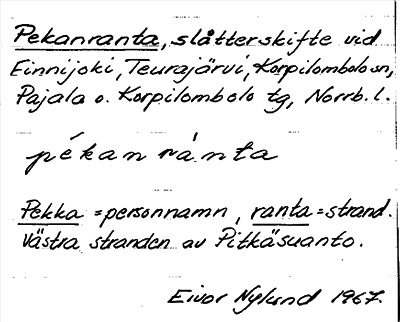 Pekanranta, slåtterskifte vid
Einnijoki, Teurajärvi, Korpilombolo sn,
Pajala o. Korpilombolo tg, Norrb. l.
pékanránta
Pekka = personnamn, ranta = strand.
Västra stranden av Pitkäsuanto.
Eivor Nylund 1967.